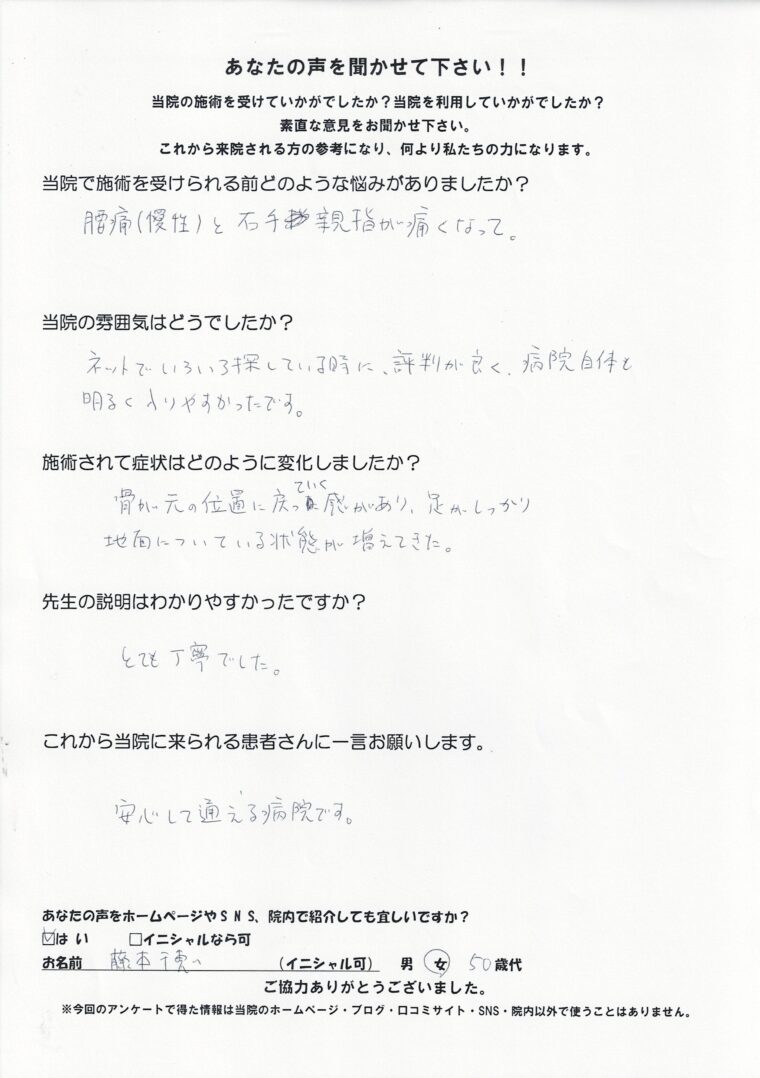 あなたの声を聞かせて下さい！！
当院の施術を受けていかがでしたか？当院を利用していかがでしたか？
素直な意見をお聞かせ下さい。
これから来院される方の参考になり、何より私たちの力になります。
当院で施術を受けられる前どのような悩みがありましたか？
腰痛(慢性)と右手親指が痛くなって。
当院の雰囲気はどうでしたか？
ネットでいろいろ探している時に、評判が良く、病院自体も
明るく入りやすかったです。
施術されて症状はどのように変化しましたか？
骨が元の位置に戻っていく感があり、足がしっかり
地面についている状態が増えてきた。
先生の説明はわかりやすかったですか？
とても丁寧でした。
これから当院に来られる患者さんに一言お願いします。
安心して通える病院です。
あなたの声をホームページやＳＮＳ、院内で紹介しても宜しいですか？
☑はい □イニシャルなら可
お名前 藤本 (イニシャル可) 男 女 50歳代
ご協力ありがとうございました。
※今回のアンケートで得た情報は当院のホームページ・ブログ・口コミサイト・SNS・院内以外で使うことはありません。